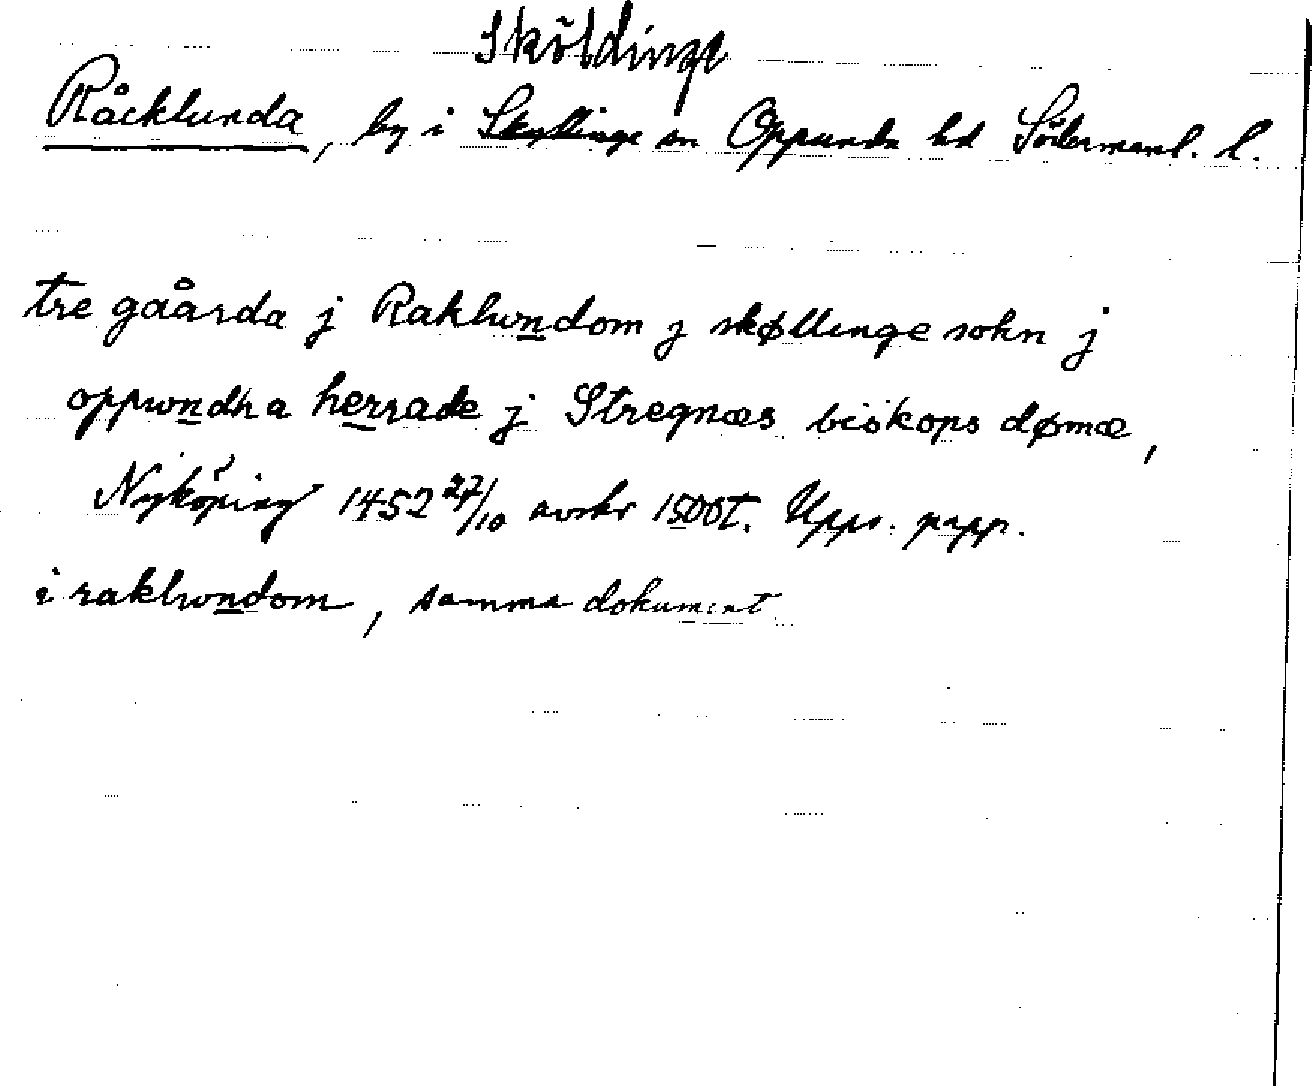 Sköldinge
Råcklunda, by i Skyllinge sn Oppunda hd Södermanl. l.
tre gaårda j Raklwndom j skøllinge sokn j
oppwndha herrade j Stregnæs biskops dømæ,
Nyköping 1452 27/10 avskr 1500t. Upps. papp.
i raklwndom, samma dokument